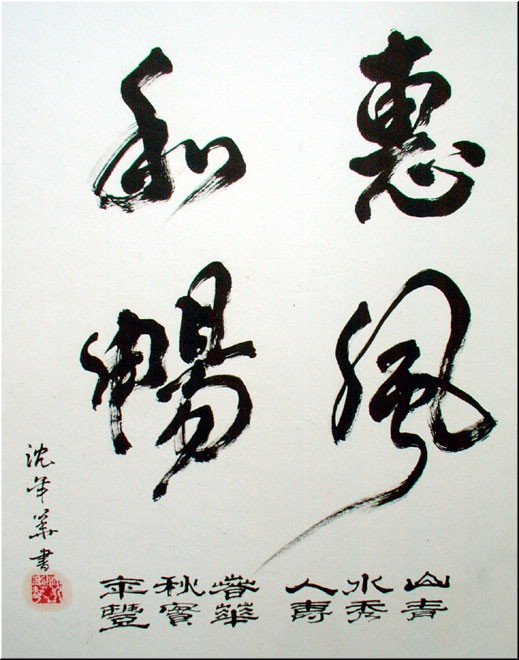 惠風
和暢
山青
水秀
人壽
春華
秋實
年豐
沈年華書